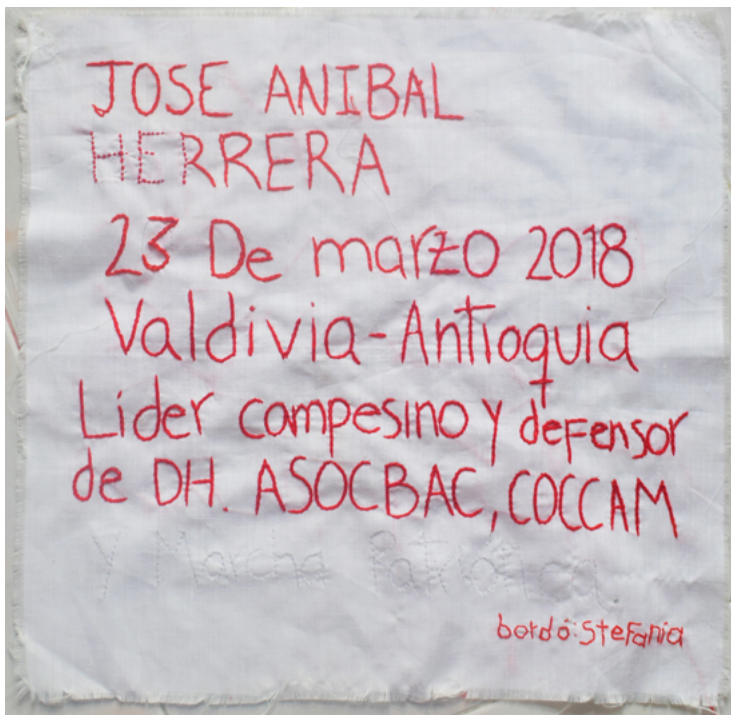 JOSE ANIBAL
HERRERA
23 De marzo 2018
Valdivia-Antioquia
Líder campesino y defensor
de DH. ASOCBAC, COCCAM
Y Marcha Patriótica.
bordó: Stefania